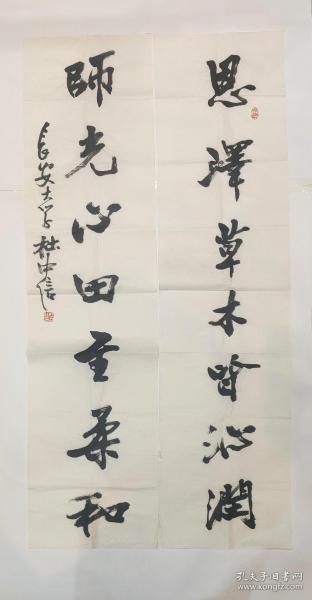 恩澤草木皆沁潤
師光心田重柔和
長安大学杜中信
孔夫子旧书网
www.kongfz.com